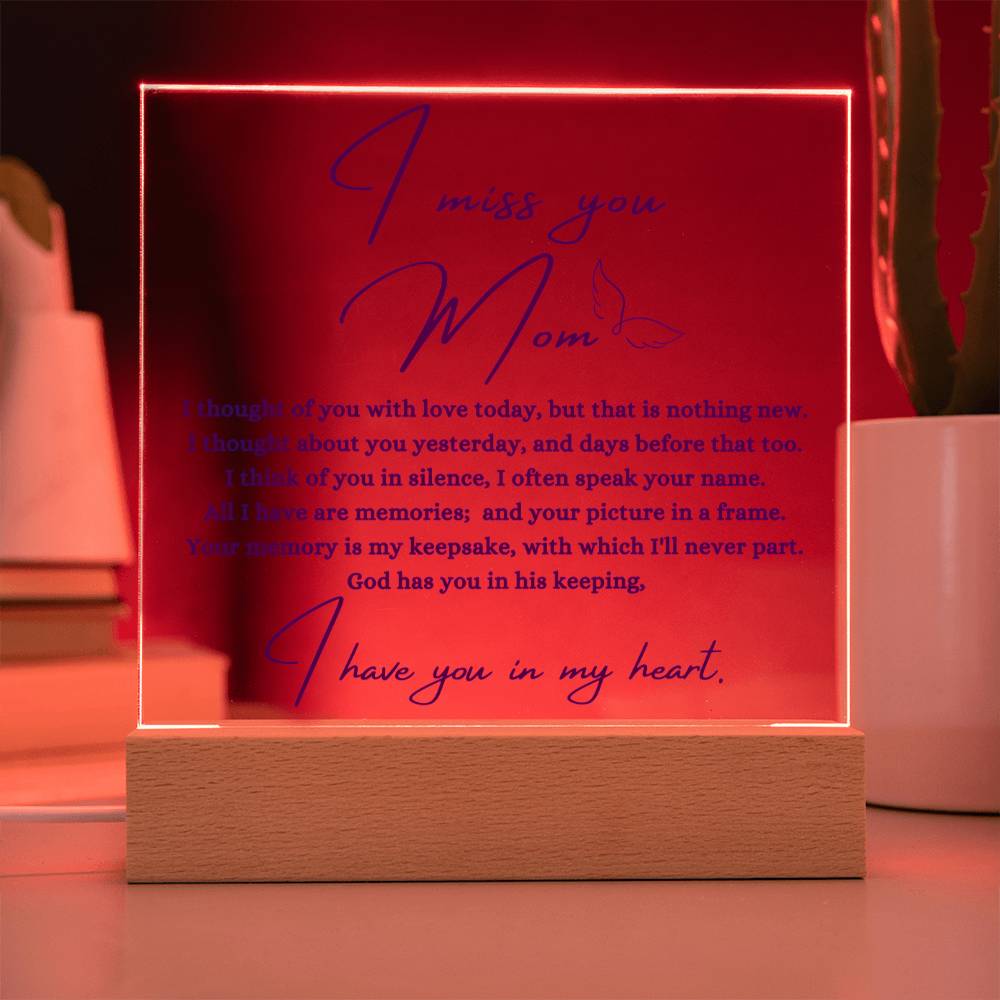 I miss you
Mom
I thought of you with love today, but that is nothing new.
I thought about you yesterday, and days before that too.
I think of you in silence, I often speak your name.
All I have are memories;  and your picture in a frame.
Your memory is my keepsake, with which I'll never part.
God has you in his keeping,
I have you in my heart.